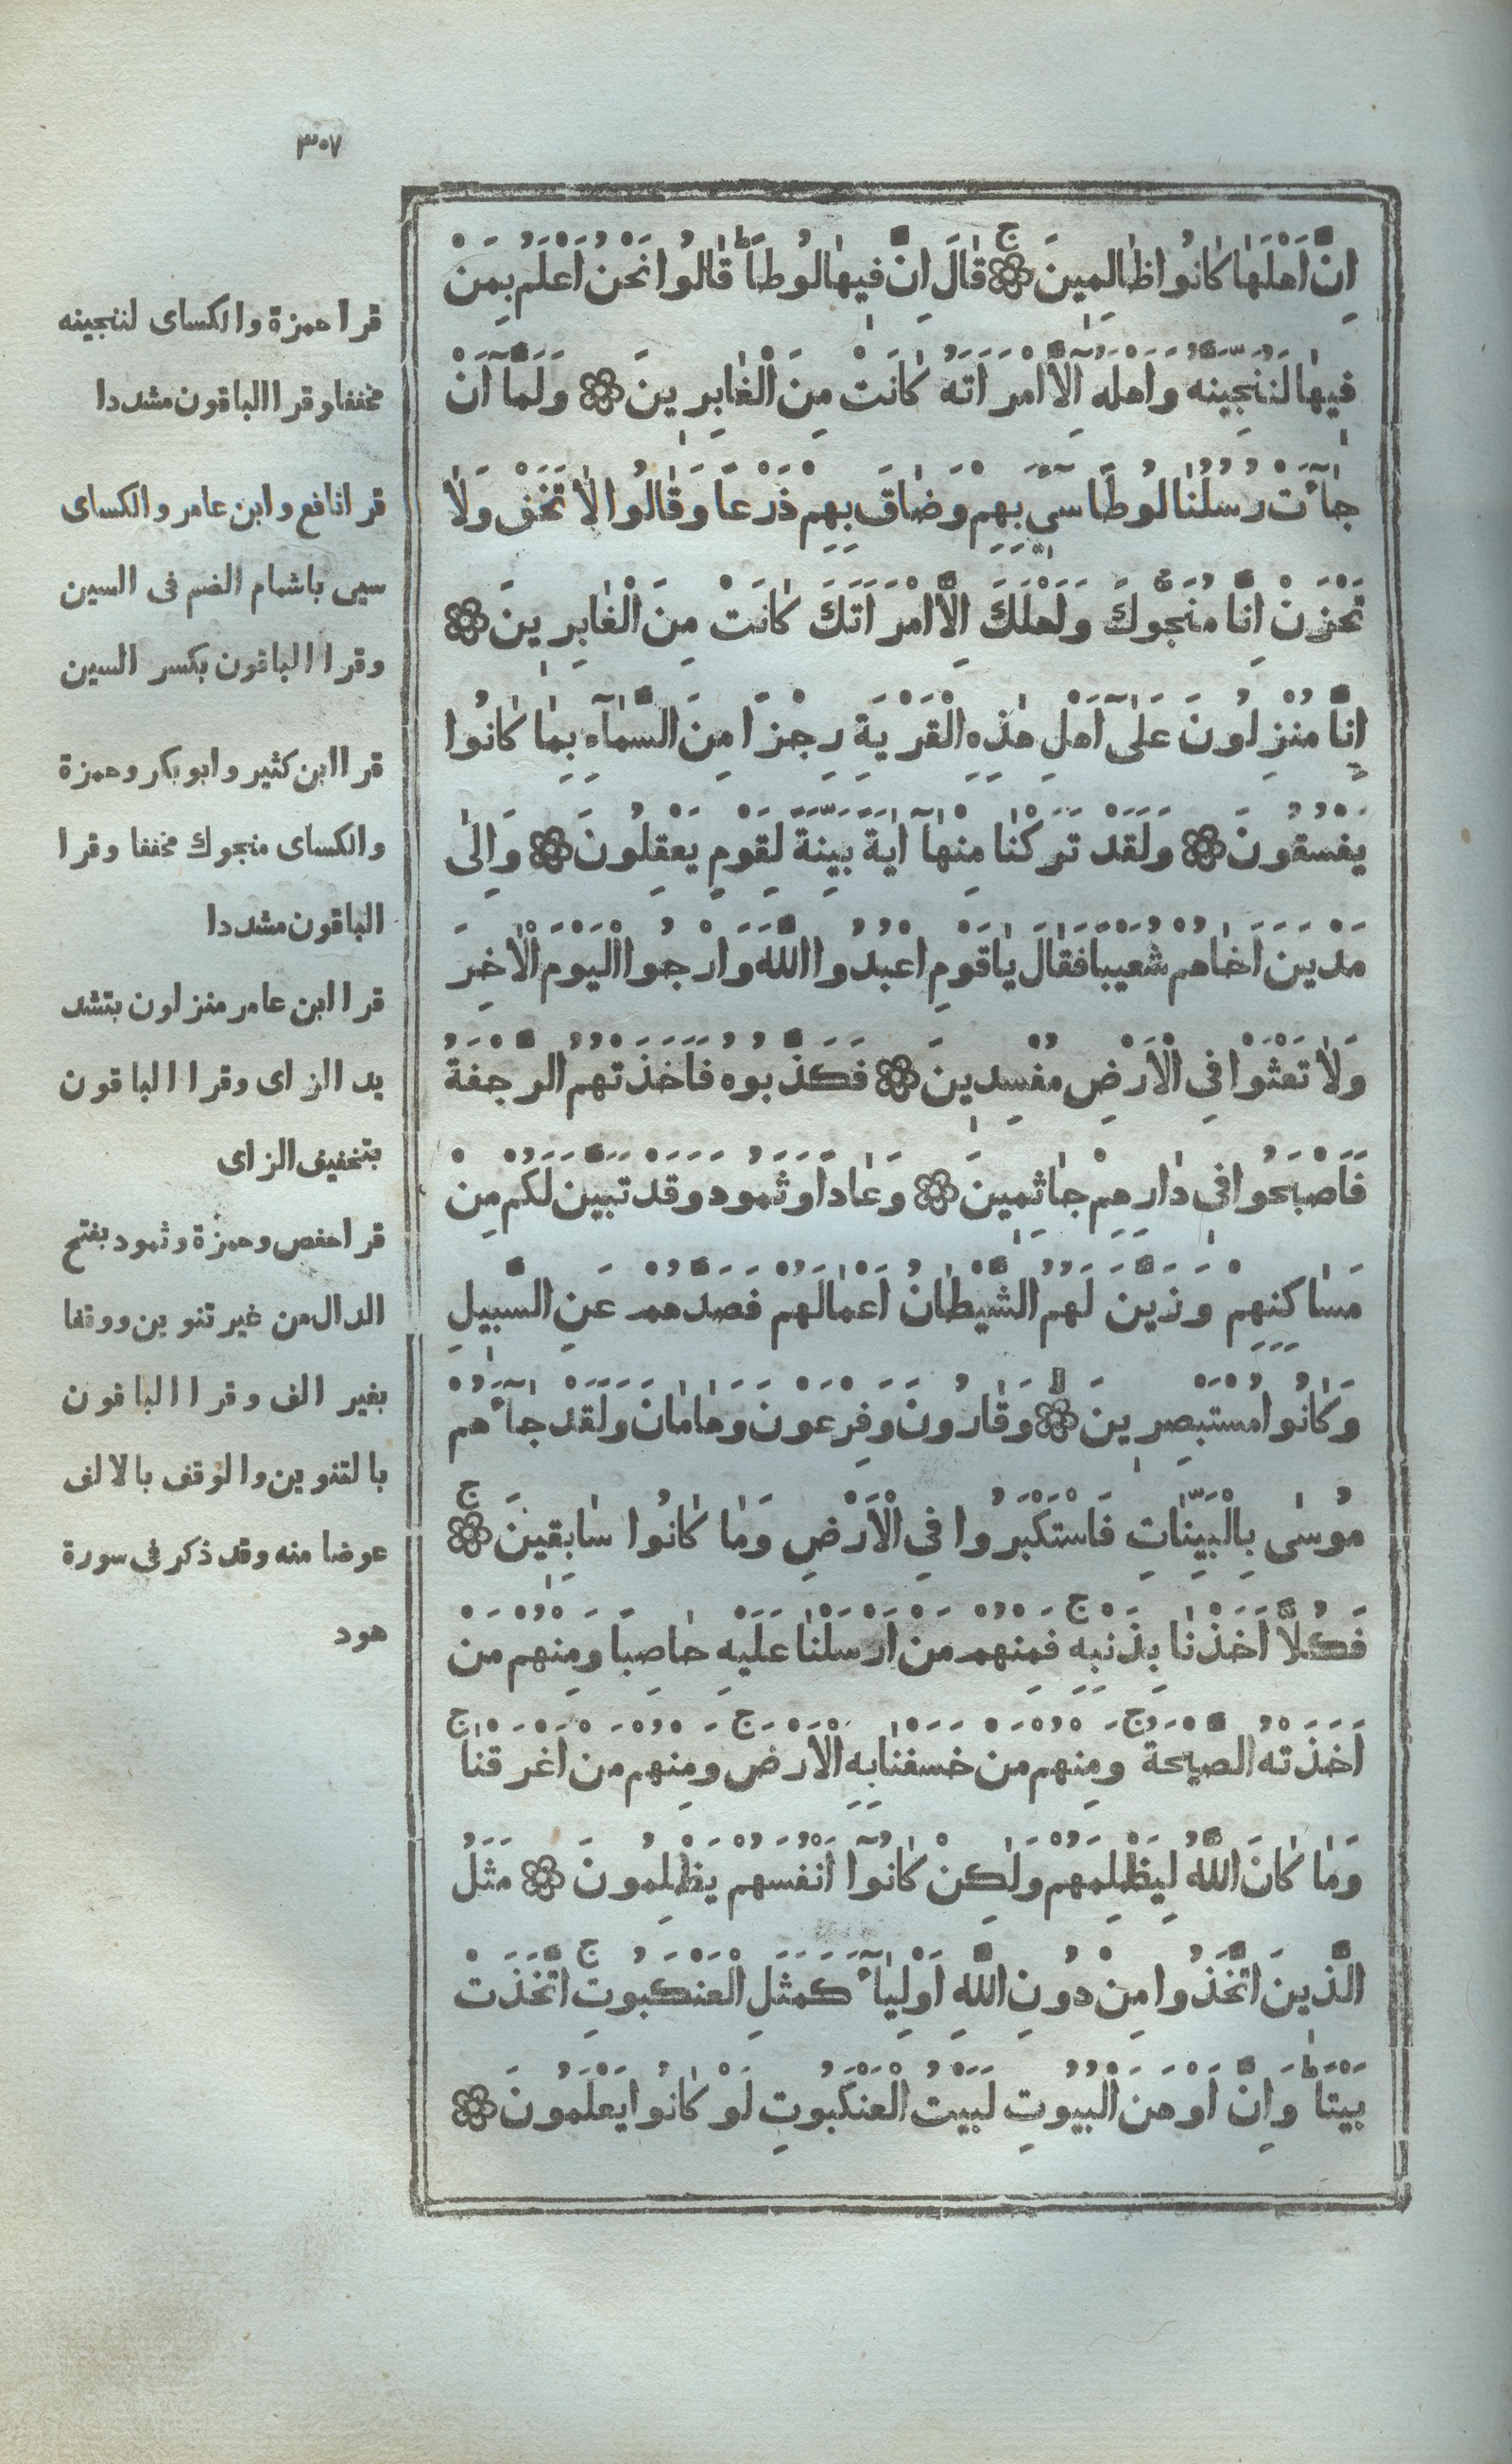 ٣٠٧
اِنَّ اَهْلَهٰا كٰانُوا ظٰالِمِينَ ۞ ج قٰالَ اِنَّ فِيهٰا لُوطًا ط قٰالُوا نَحْنُ اَعْلَمُ بِمَنْ
فِيهٰا لَنُنَجِّيَنَّهُ وَاَهْلَهُ اِلَّا امْرَاَتَهُ كٰانَتْ مِنَ الْغٰابِرِينَ ۞ وَلَمَّآ اَنْ
جٰآءَتْ رُسُلُنٰا لُوطًا سِيٓءَ بِهِمْ وَضٰاقَ بِهِمْ ذَرْعًا وَقٰالُوا لٰا تَخَفْ وَلٰا
تَحْزَنْ اِنَّا مُنَجُّوكَ وَاَهْلَكَ اِلَّا امْرَاَتَكَ كٰانَتْ مِنَ الْغٰابِرِينَ ۞
اِنَّا مُنْزِلُونَ عَلٰٓى اَهْلِ هٰذِهِ الْقَرْيَةِ رِجْزًا مِنَ السَّمٰآءِ بِمٰا كٰانُوا
يَفْسُقُونَ ۞ وَلَقَدْ تَرَكْنٰا مِنْهٰآ اٰيَةً بَيِّنَةً لِقَوْمٍ يَعْقِلُونَ ۞ وَاِلٰى
مَدْيَنَ اَخٰاهُمْ شُعَيْبًا فَقٰالَ يٰا قَوْمِ اعْبُدُوا اللَّهَ وَارْجُوا الْيَوْمَ الْاٰخِرَ
وَلٰا تَعْثَوْا فِي الْاَرْضِ مُفْسِدِينَ ۞ فَكَذَّبُوهُ فَاَخَذَتْهُمُ الرَّجْفَةُ
فَاَصْبَحُوا فِي دٰارِهِمْ جٰاثِمِينَ ۞ وَعٰادًا وَثَمُودَ وَقَدْ تَبَيَّنَ لَكُمْ مِنْ
مَسٰاكِنِهِمْ وَزَيَّنَ لَهُمُ الشَّيْطٰانُ اَعْمٰالَهُمْ فَصَدَّهُمْ عَنِ السَّبِيلِ
وَكٰانُوا مُسْتَبْصِرِينَ ۞ لا وَقٰارُونَ وَفِرْعَوْنَ وَهٰامٰانَ وَلَقَدْ جٰآءَهُمْ
مُوسٰى بِالْبَيِّنٰاتِ فَاسْتَكْبَرُوا فِي الْاَرْضِ وَمٰا كٰانُوا سٰابِقِينَ ۞ ج
فَكُلًّا اَخَذْنٰا بِذَنْبِهِ ج فَمِنْهُمْ مَنْ اَرْسَلْنٰا عَلَيْهِ حٰاصِبًا وَمِنْهُمْ مَنْ
اَخَذَتْهُ الصَّيْحَةُ ج وَمِنْهُمْ مَنْ خَسَفْنٰا بِهِ الْاَرْضَ ج وَمِنْهُمْ مَنْ اَغْرَقْنٰا ج
وَمٰا كٰانَ اللَّهُ لِيَظْلِمَهُمْ وَلٰكِنْ كٰانُوٓا اَنْفُسَهُمْ يَظْلِمُونَ ۞ مَثَلُ
الَّذِينَ اتَّخَذُوا مِنْ دُونِ اللَّهِ اَوْلِيٰآءَ كَمَثَلِ الْعَنْكَبُوتِ ج اتَّخَذَتْ
بَيْتًا ط وَاِنَّ اَوْهَنَ الْبُيُوتِ لَبَيْتُ الْعَنْكَبُوتِ لَوْ كٰانُوا يَعْلَمُونَ ۞
قرا حمزة والكساى لننجينه
مخففا وقرا الباقون مشددا
قرا نافع وابن عامر والكساى
سيى باشمام الضم فى السين
وقرا الباقون بكسر السين
قرا ابن كثير وابو بكر وحمزة
والكساى منجوك مخففا وقرا
الباقون مشددا
قرا ابن عامر منزلون بتشد
يد الزاى وقرا الباقون
بتخفيف الزاى
قرا حفص وحمزة وثمود بفتح
الدال من غير تنوين ووقفا
بغير الف وقرا الباقون
بالتنوين والوقف بالالف
عوضا منه وقد ذكر فى سورة
هود